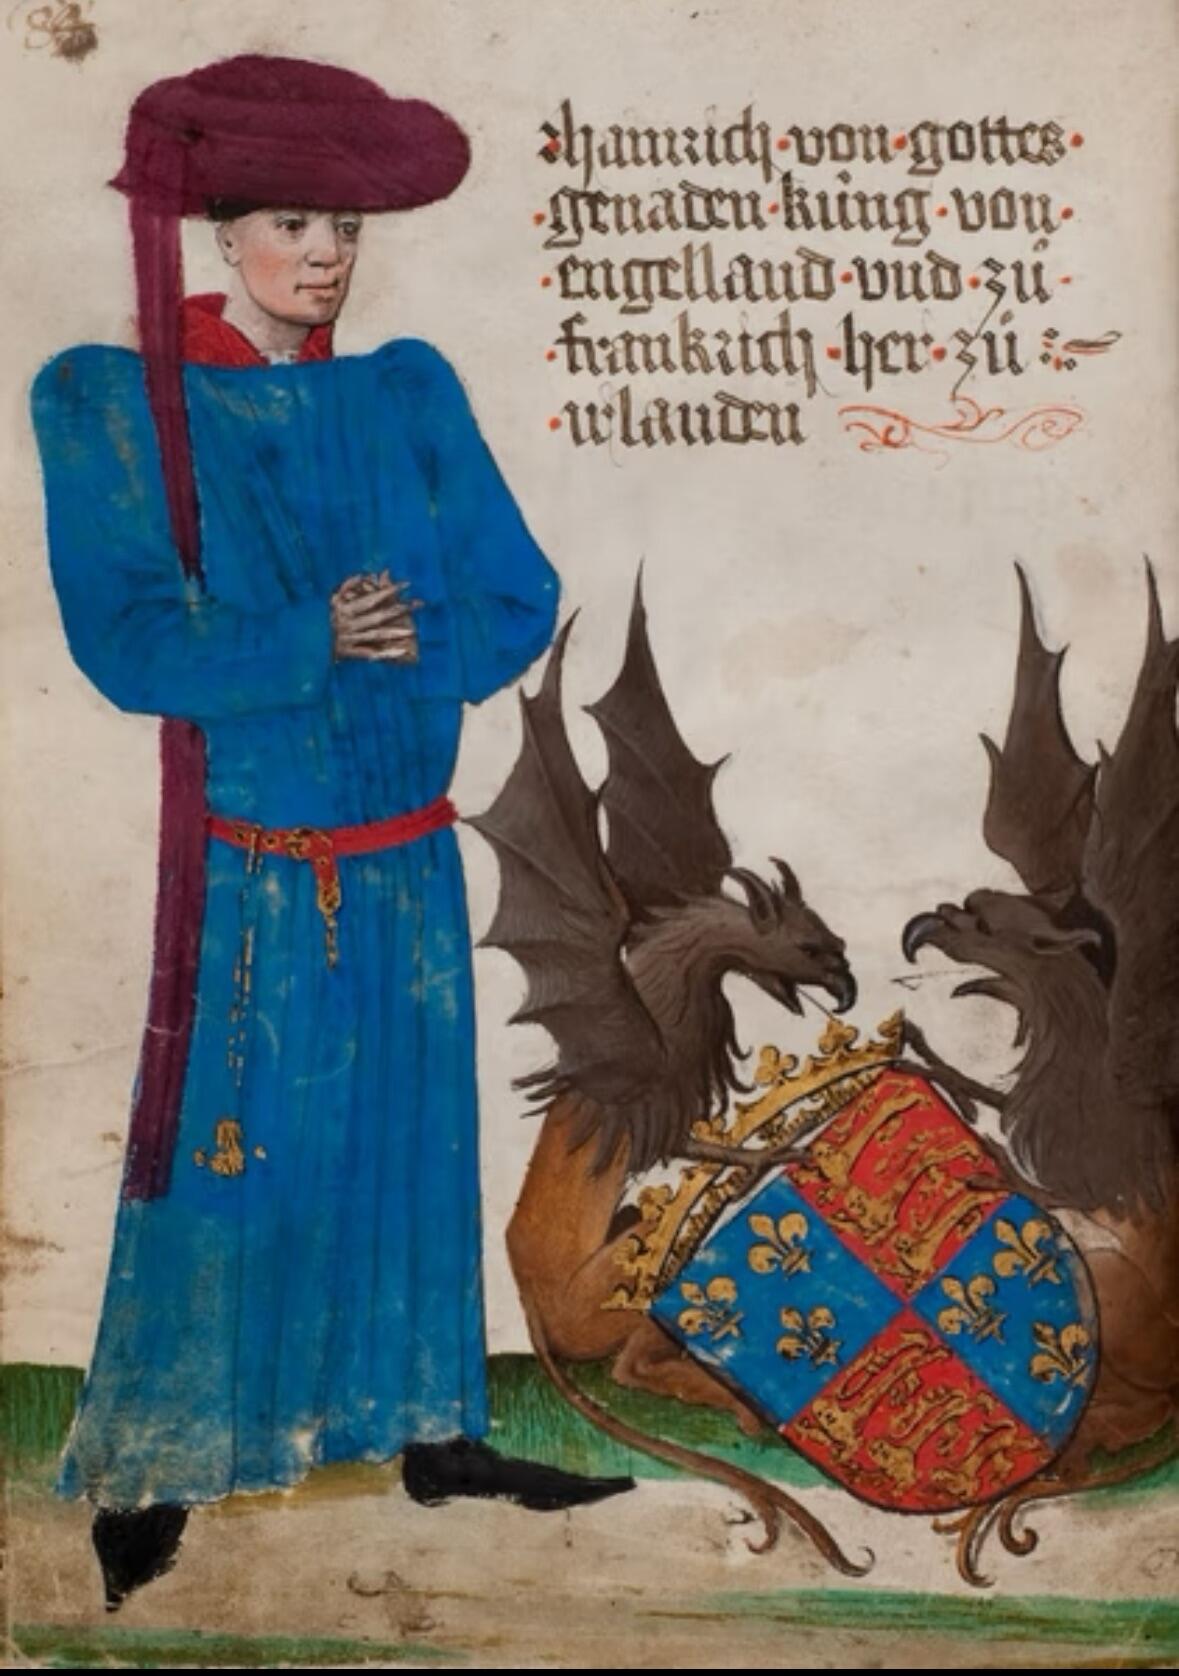 hainrich·von·gottes·
·genaden·kúng·von·
·engelland·vnd·zů·
·frankrich·her·zů
·irlanden